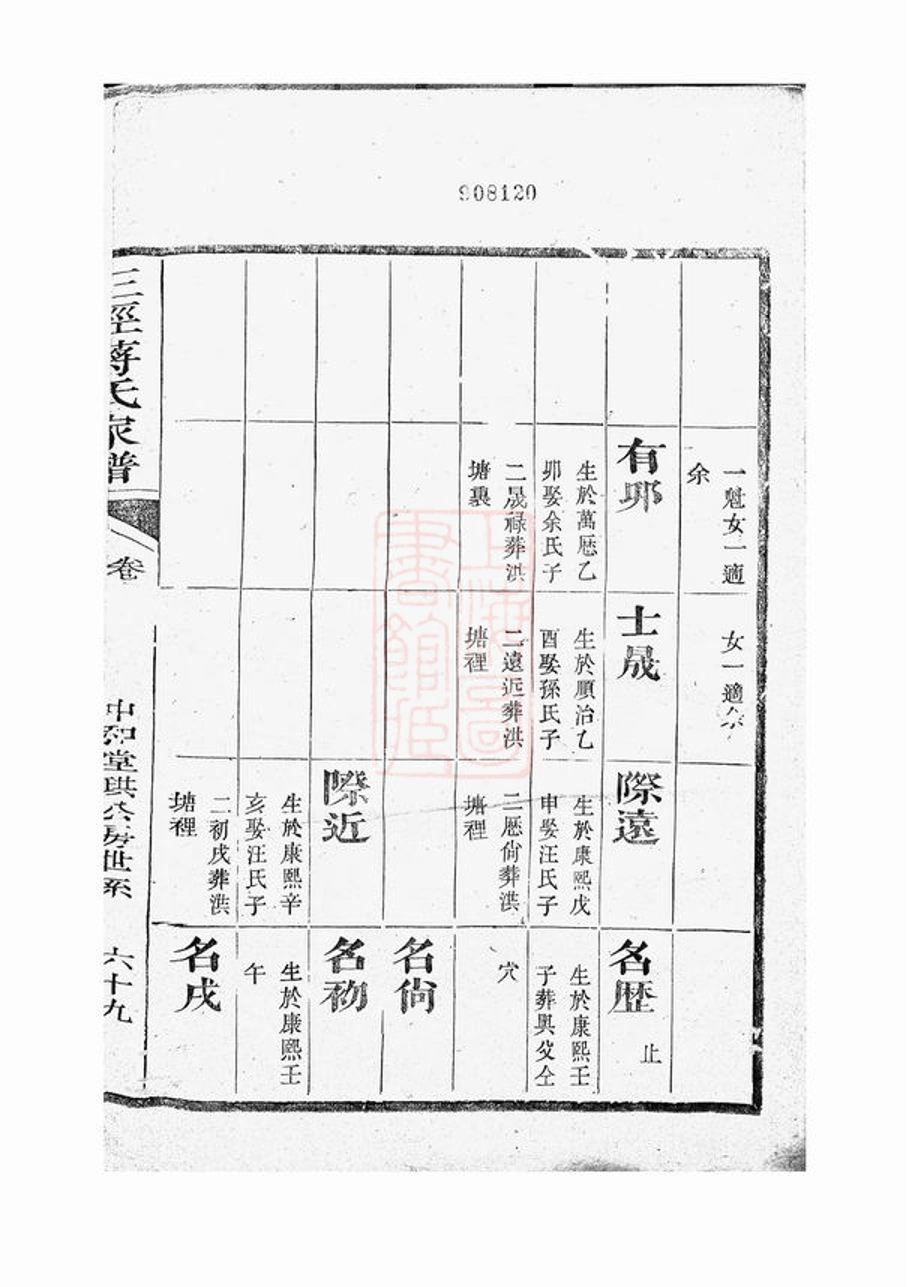 908120
一魁女一適
余
有夘
生於萬厯乙
夘娶余氏子
二晟祿葬洪
塘裏
女一適余
士晟
生於順治乙
酉娶孫氏子
二遠近葬洪
塘裡
際遠
生於康熙戊
申娶汪氏子
二厯尙葬洪
塘裡
際近
生於康熙辛
亥娶汪氏子
二初戌葬洪
塘裡
名歴
止
生於康熙壬
子葬與父仝
穴
名尙
名初
生於康熙壬
午
名戌
三徑蔣氏家譜
卷
中和堂珙公房世系
六十九
上海圖
書館藏